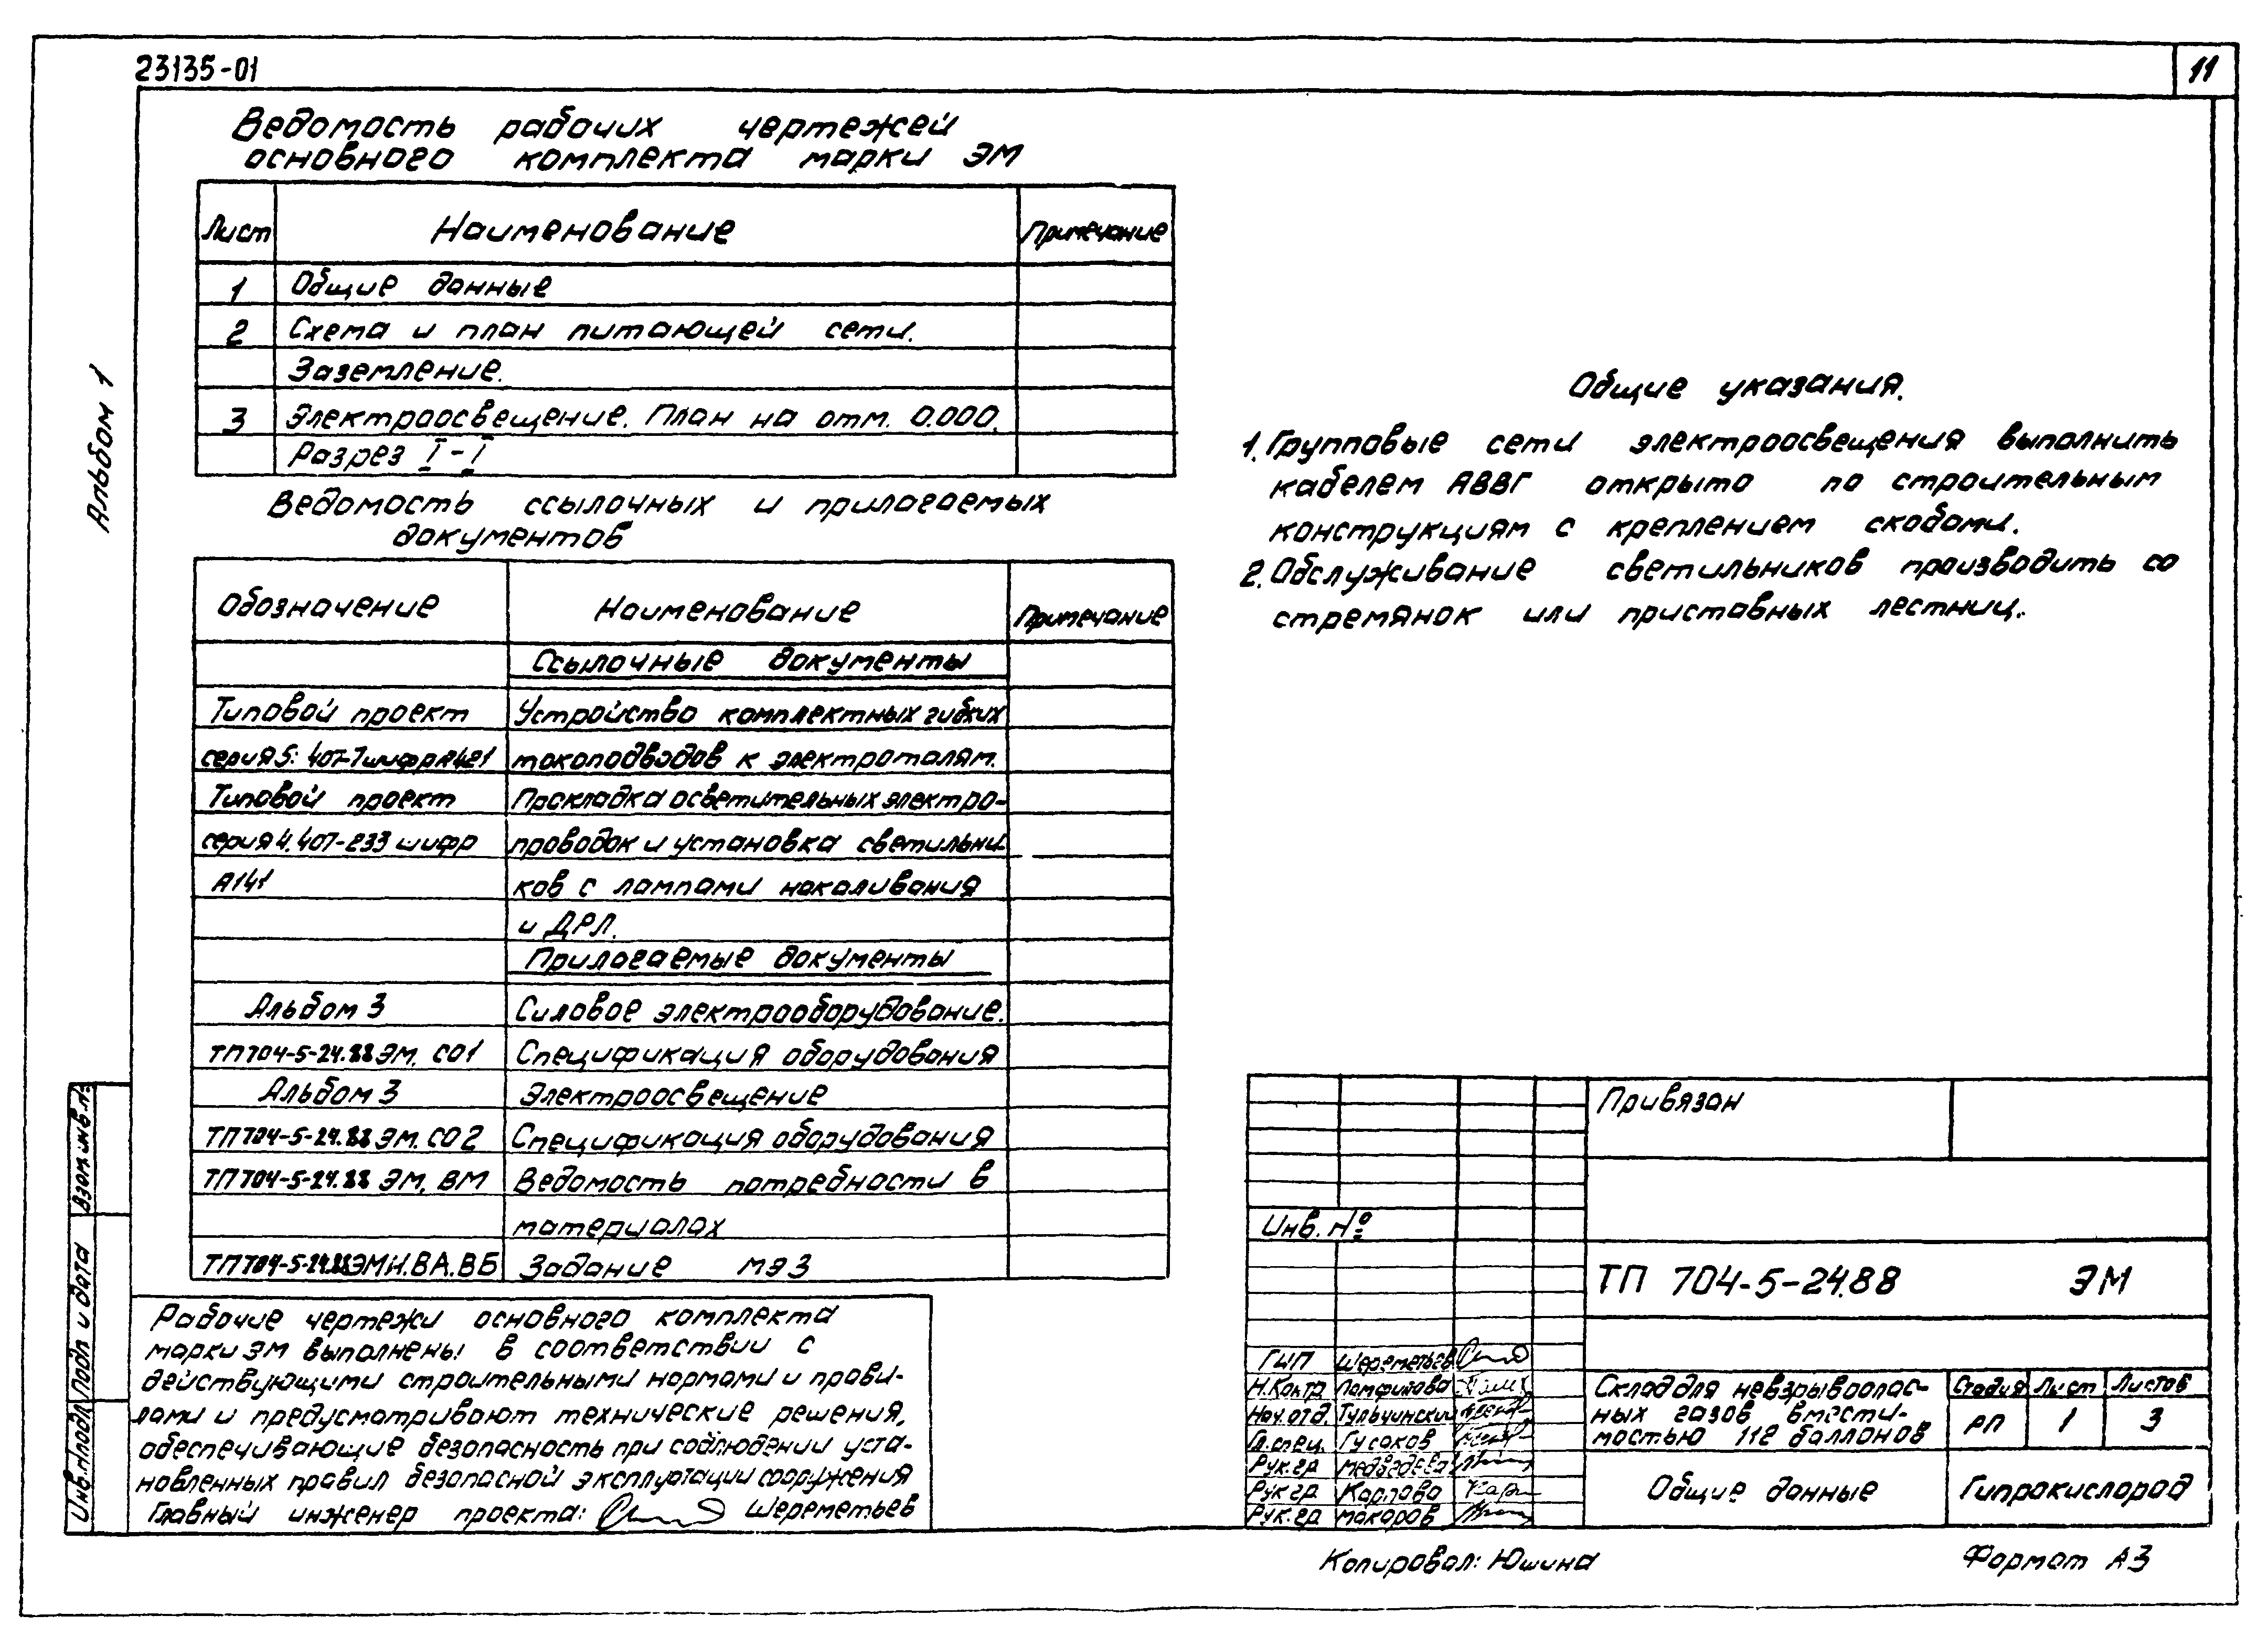 23135-01
11
Альбом 1
Ведомость рабочих чертежей
основного комплекта марки ЭМ
Лист Наименование Примечание
1 Общие данные
2 Схема и план питающей сети.
Заземление.
3 Электроосвещение. План на отм. 0.000.
Разрез I-I
Ведомость ссылочных и прилагаемых
документов
Обозначение Наименование Примечание
Ссылочные документы
Типовой проект Устройство комплектных гибких
серия 5. 407-7 шифр токоподводов к электроталям.
Типовой проект Прокладка осветительных электро-
серия 4.407-233 шифр проводок и установка светильни-
А141 ков с лампами накаливания
и ДРЛ.
Прилагаемые документы
Альбом 3 Силовое электрооборудование.
ТП 704-5-24.88 ЭМ. СО1 Спецификация оборудования
Альбом 3 Электроосвещение
ТП 704-5-24.88 ЭМ. СО2 Спецификация оборудования
ТП 704-5-24.88 ЭМ. ВМ Ведомость потребности в
материалах
ТП 704-5-24.88 ЭМН.ВА.ВБ Задание МЭЗ
Рабочие чертежи основного комплекта
марки ЭМ выполнены в соответствии с
действующими строительными нормами и прави-
лами и предусматривают технические решения,
обеспечивающие безопасность при соблюдении уста-
новленных правил безопасной эксплуатации сооружения
Главный инженер проекта: Шереметьев
Общие указания.
1. Групповые сети электроосвещения выполнить
кабелем АВВГ открыто по строительным
конструкциям с креплением скобами.
2. Обслуживание светильников производить со
стремянок или приставных лестниц.
Взам.инв.№
Подп и дата
Инв.№подл
Привязан
Инв. №
ТП 704-5-24.88 ЭМ
ГИП Шереметьев
Н.Контр Памфилова
Нач.отд. Тульчинский
Гл.спец. Гусаков
Рук.гр Медведева
Рук.гр Карпова
Рук.гр Макаров
Склад для невзрывоопас-
ных газов вмести-
мостью 112 баллонов
Стадия Лист Листов
РП 1 3
Общие данные
Гипрокислород
Копировал: Юшина
Формат А3